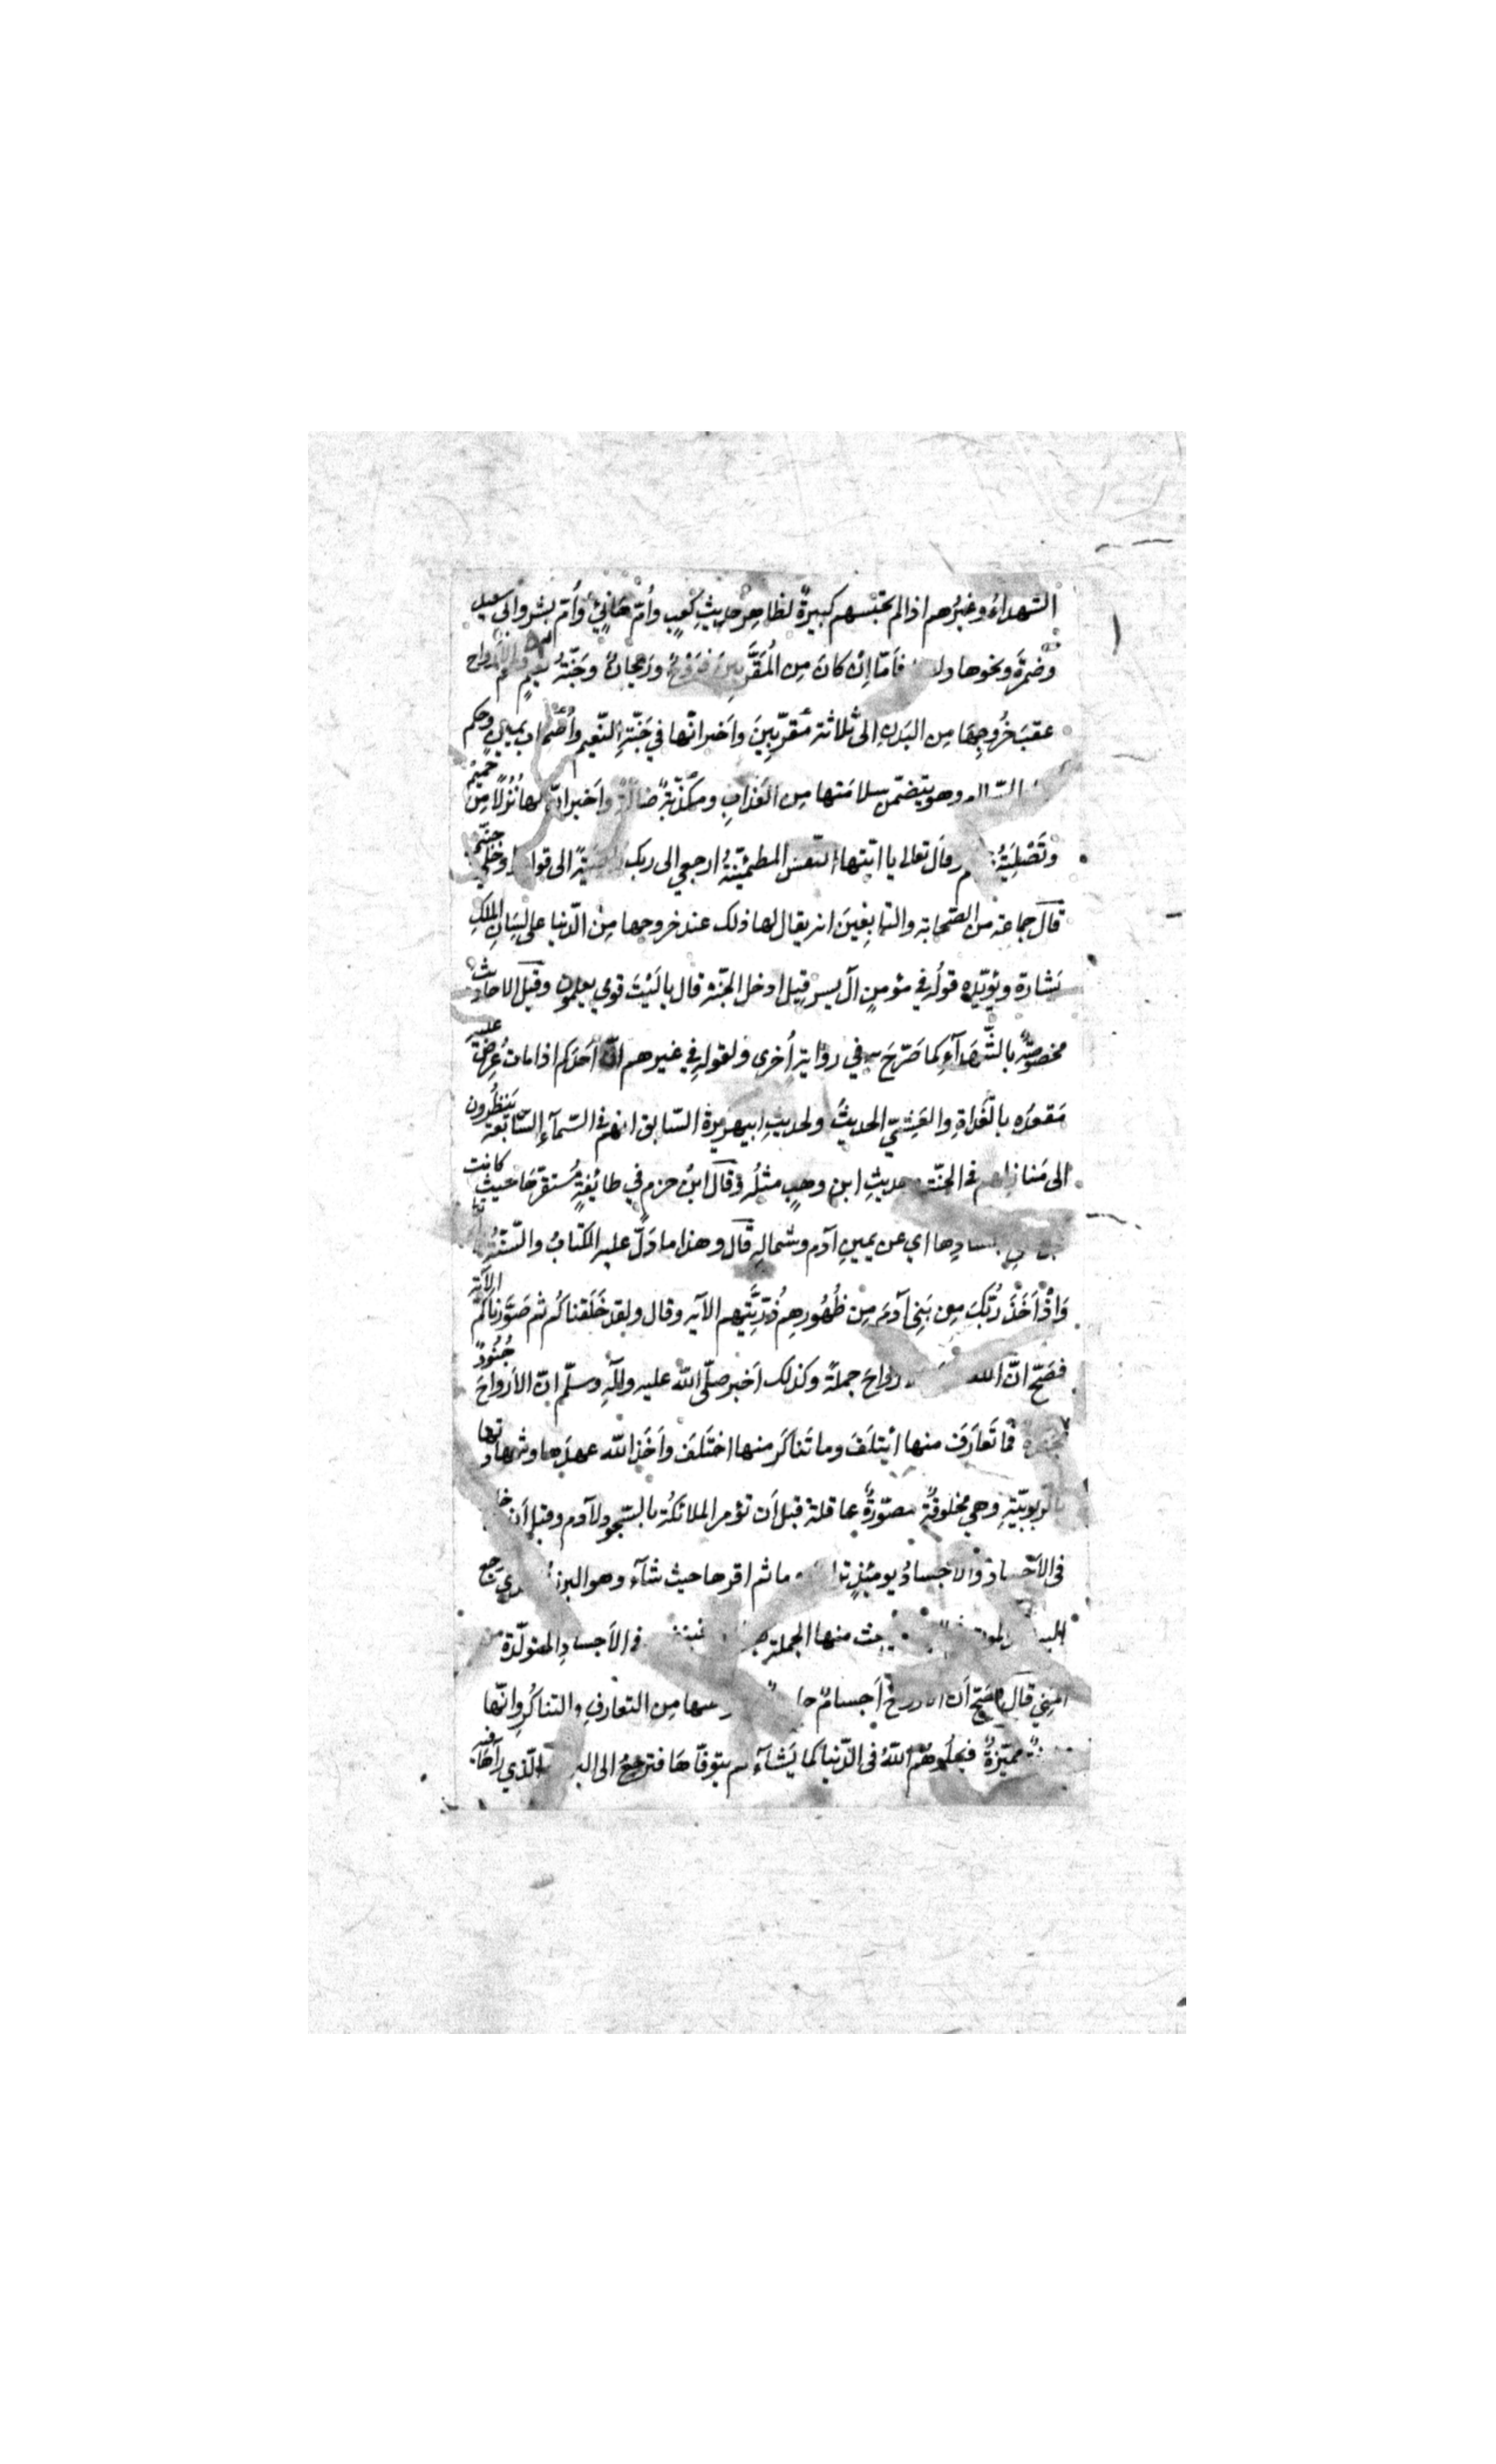 الشهداءُ وغيرُهم اذا لم تحبسهم كبيرةٌ لظاهِر حديثِ كعبٍ وأمّ هانئٍ وأمّ بشر وابي سعيد
وضمرةَ ونحوها فأمّا إنْ كانَ مِن المُقَرَّبِينَ فَرَوْحٌ ورَيحانٌ وجَنّةُ نعيمٍ الأرواح
عقبَ خُروجِهَا مِن البَدنِ الى ثلاثة مُقرّبِينَ واَخبر انّها في جَنّةِ النّعيم وأصحاب يمينٍ وحكم
وهو يتضمّن سلامَتها مِن العَذابِ ومكذّبةً ضالةً واَخبر انّ لها نُزُلًا مِن حَمِيمٍ
وتَصْلِيَةُ جحيم وقال تعالى يا ايّتها النفس المطمئِنّةُ ارجعي الى ربك الى قوله وادخلي جنتي
قال جماعة من الصّحابة والتابعِينَ انه يقال لها ذلك عند خروجها مِن الدّنيا على لِسَانِ المَلَكِ
بَشارة ويؤيّده قولُه في مؤمنِ آل يس قيل ادخل الجنّة قال يا لَيْتَ قومي يعلمون وقيل الاحاديث
مخصوصةٌ بالشّهدآءِ كما صَرّحَ به في رواية أخرى ولقوله في غيرهم انّ اَحدَكم اذا مات عُرِضَ عليه
مَقعدُه بالغَداةِ والعَشِيّ الحديثُ ولحديثِ ابي هريرة السّابق انهم في السّمآءِ السّابعة يَنظُرون
الى مَنازلهم في الجنّة وحديثِ ابن وهبٍ مثلُه وقال ابنُ حزمٍ في طائِفةٍ مُستقرّهَا حيثُ كانت
قبل اجسادِها اي عن يمينِ آدم وشمالِه قال وهذا ما دَلّ عليه الكتابُ والسّنّةُ
وَاِذْ أَخَذَ رَبُّكَ مِن بَنِي آدمَ مِن ظُهُورِهِم ذُرّيّتِهم الآيه وقال ولقد خَلَقناكُم ثم صَوَّرناكُم الآية
فصَحّ انّ الله الارواحَ جملةً وكذلك اَخبر صلّى الله عليه وآلهِ وسلّم انّ الأرواحَ جُنُودٌ
مجندة فما تَعارَفَ منها ائتلَفَ وما تَناكَر منها اختَلَفَ واَخَذ الله عهدَها وشهادتها
بالرّبوبيّةِ وهي مخلوقةٌ مصوّرةٌ عاقلة قبل أن تؤمر الملائكةُ بالسّجود لآدم وقبل اَن
في الأجساد والأجسادُ يومئِذٍ ثم اقرها حيث شآء وهو البرزخ الذي ترجع
منها الجملة في الأجسادِ المتولّدة من
المنيّ قال فصحّ اَن الأرواح اَجسامٌ مِن التعارفِ والتناكُرِ وانّها
مميّزةٌ فيبلُوهُم اللّهُ في الدّنيا كما يَشآءُ ثم يتوفّاهَا فترجعُ الى البرزخ الّذي رآهَا فيه